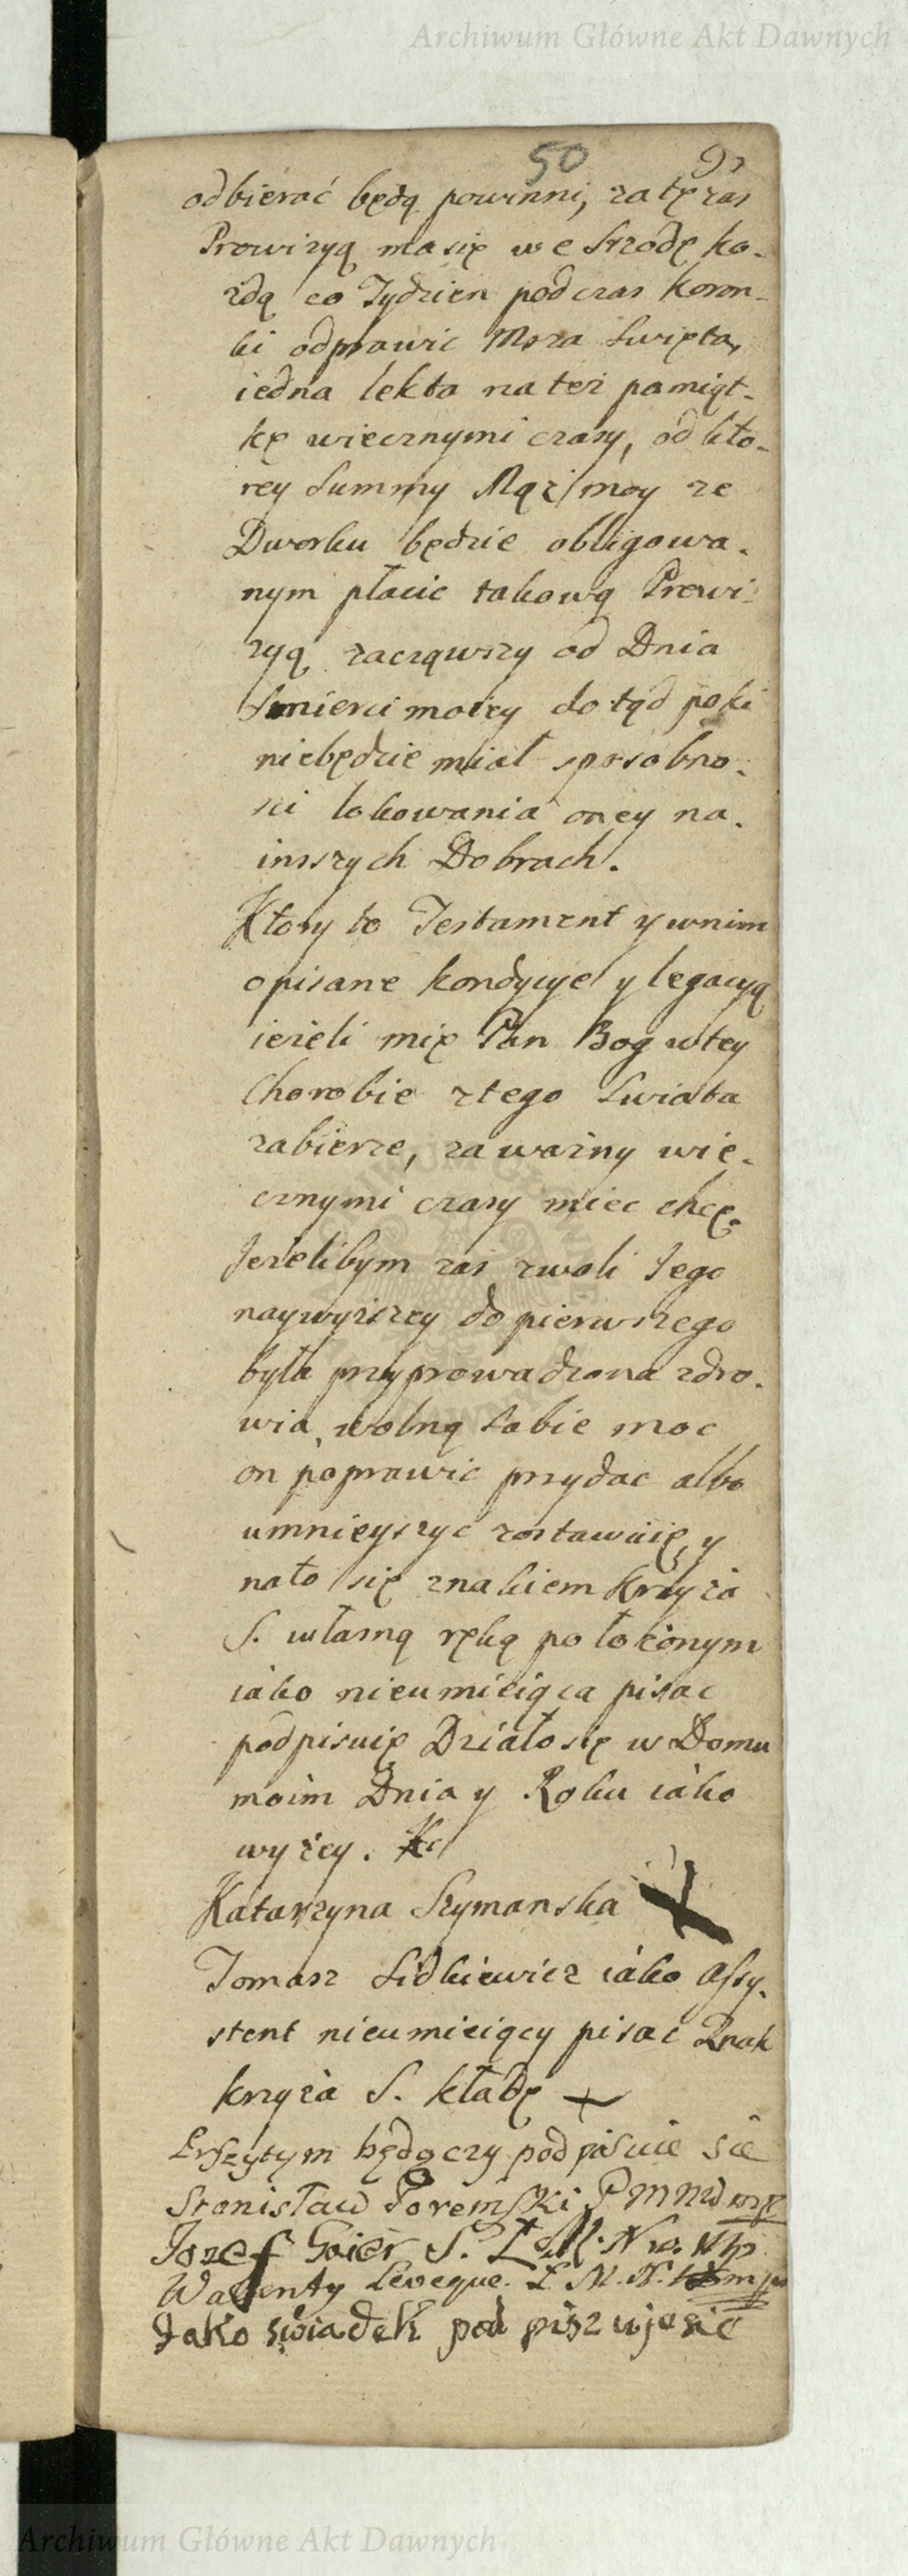 Archiwum Główne Akt Dawnych
50
odbierać będą powinni, za tę zas
Prowizyą ma się w e Srzodę ka-
żdą co Tydzien podczas Koron-
ki odprawic Msza Swięta,
iedna lekta na też pamiąt-
kę wiecznymi czasy, od kto-
rey Summy Mąż moy ze
Dworku będzie obligowa-
nym płacic takową Prowi-
zyą, zacząwszy od Dnia
Smierci moiey do tąd poki
niebędzie miał sposobno-
sci lokowania oney na
inszych Dobrach.
Ktory to Testament y wnim
opisane kondycye y legacyą
ieżeli mię Pan Bog w tey
Chorobie z tego Swiata
zabierze, za ważny wie-
cznymi czasy miec chcę.
Jeżelibym zas zwoli Jego
naywyższey do pierwszego
była przyprowadzona zdro-
wia, wolną sobie moc
on poprawic przydac albo
umnieyszyc zostawuię, y
nato się znakiem Krzyża
S. własną ręką położonym
iako nieumieiąca pisac
podpisuię Działo się w Domu
moim Dnia y Roku iako
wyżey.
Katarzyna Szymanska
Tomasz Sidkiewicz iako Assy-
stent nieumieiący pisac Znak
krzyża S. kładę +
będoczy pod pisuie sie
Stanisław Poremski P M M
Jozef Goier S.
Walenty Leveque. L M. N.
Jako swiadek pod piszuje sie
Archiwum Główne Akt Dawnych